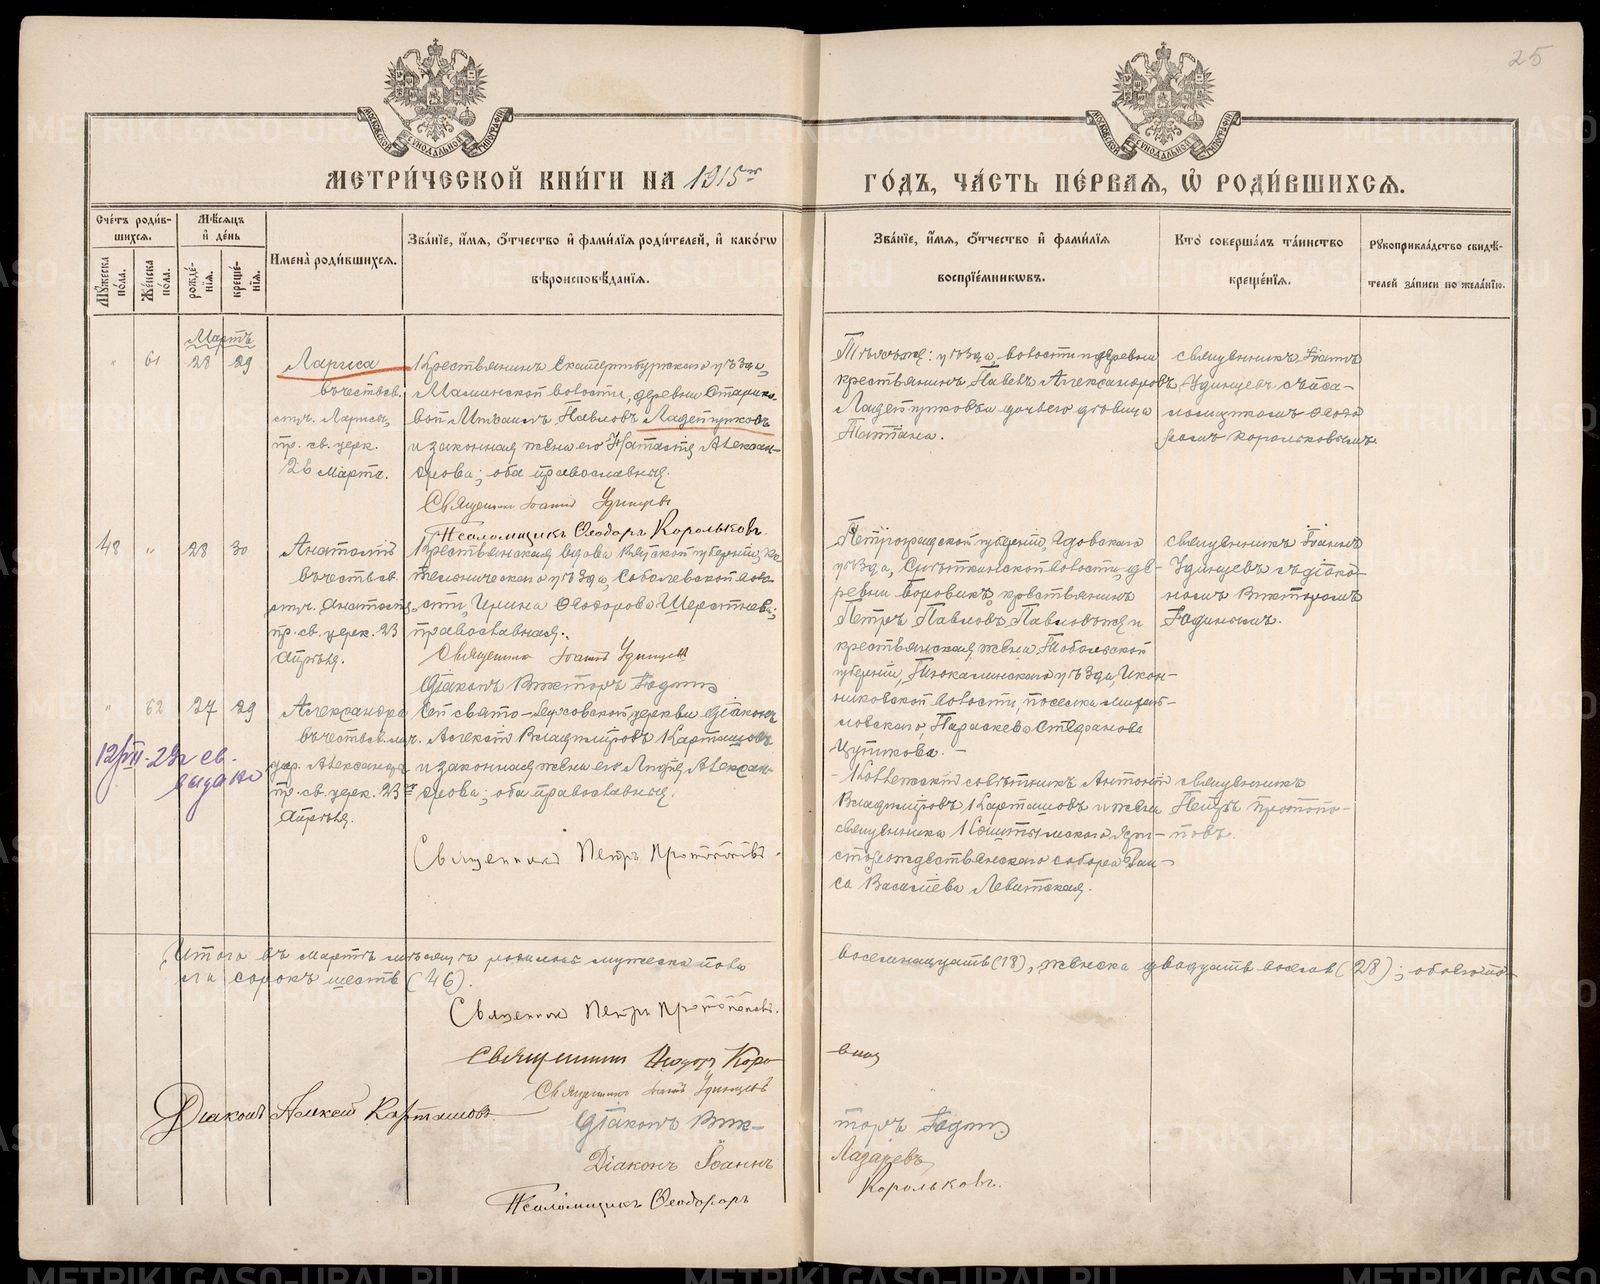 25
МЕТРИ́ЧЕСКОЙ КНИ́ГИ НА 1915й
ГО́ДЪ, ЧА́СТЬ ПЕ́РВАЯ, Ѡ҆ РОДИ́ВШИХСЯ.
Сче́тъ роди́вшихся.
Мѣ́сяцъ и҆ де́нь
Имена̀ роди́вшихся.
Зва́нїе, и҆́мя, ѻ҆́тчество и҆ фами́лїя роди́телей, и҆ како́гѡ
вѣроисповѣ́данїя.
Мꙋ́жеска по́ла.
Же́нска по́ла.
рожде́нїя.
креще́нїя.
Зва́нїе, и҆́мя, ѻ҆́тчество и҆ фами́лїя
воспрїе́мникѡвъ.
Кто̀ соверша́лъ та́инство
креще́нїя.
Рꙋкоприкла́дство свидѣ́-
телей за́писи по жела́нїю.
Мартъ
" 61 28 29
Лариса
въ честь св.
муч. Ларисы,
пр. св. церк.
26 Марта.
Крестьянинъ Екатеринбургскаго уѣзда,
Маминской волости, деревни Старико-
вой Михаилъ Павловъ Ладейщиковъ
и законная жена его Наталія Алексан-
дрова; оба православные.
Священникъ Іоаннъ Удинцевъ
Псаломщикъ Ѳеодоръ Корольковъ.
Тѣхъ же: уѣзда, волости и деревни
крестьянинъ Павелъ Александровъ
Ладейщиковъ и дочь его дѣвица
Татіана.
священникъ Іоаннъ
Удинцевъ съ псa-
ломщикомъ Ѳеодо
ромъ Корольковымъ.
48 " 28 30
Анатолій
въ честь св.
муч. Анатолія,
пр. св. церк. 23
Апрѣля.
Крестьянская вдова Вятской губерніи, Ко
тельническаго уѣзда, Соболевской воло-
сти, Ирина Ѳеодорова Шерстнева;
православная.
Священникъ Іоаннъ Удинцевъ
Діаконъ Викторъ Гадинъ
Петроградской губерніи, Гдовскаго
уѣзда, волости, де-
ревни Боровикъ, крестьянинъ
Петръ Павловъ и
крестьянская жена Тобольской
губерніи, Тюкалинскаго уѣзда, Икон-
никовской волости, поселка
Параскева Стефанова
священникъ Іоаннъ
Удинцевъ съ діако-
номъ Викторомъ
Гадинымъ.
" 62 27 29
Александра
въ честь св. муч.
цар. Александры
пр. св. церк. 23го
Апрѣля.
Сей свято- церкви діаконъ
Алексій Владиміровъ Карташовъ
и законная жена его Лидія Алексан-
дрова; оба православные.
Священникъ Петръ Протопоповъ.
Коллежскій совѣтникъ Антоній
Владиміровъ Карташовъ и жена
священника Кыштымскаго Хри-
сторождественскаго собора Раи-
са Василіева Левитская.
священникъ
Петръ Протопо-
повъ.
12/III-23г св.
выдано
Итого въ мартѣ мѣсяцѣ родилось мужеска пола
восемнадцать (18), женска двадцать восемь (28); обоего по-
ла сорокъ шесть (46).
Священникъ Петръ Протопоповъ.
Священникъ Ѳеодоръ Коро-
вин
Священникъ Іоаннъ Удинцевъ
Діаконъ Алексій Карташовъ
Діаконъ Вик-
торъ Гадинъ
Діаконъ Іоаннъ
Лазаревъ
Псаломщикъ Ѳеодоръ
Корольковъ.
METRIKI.GASO-URAL.RU